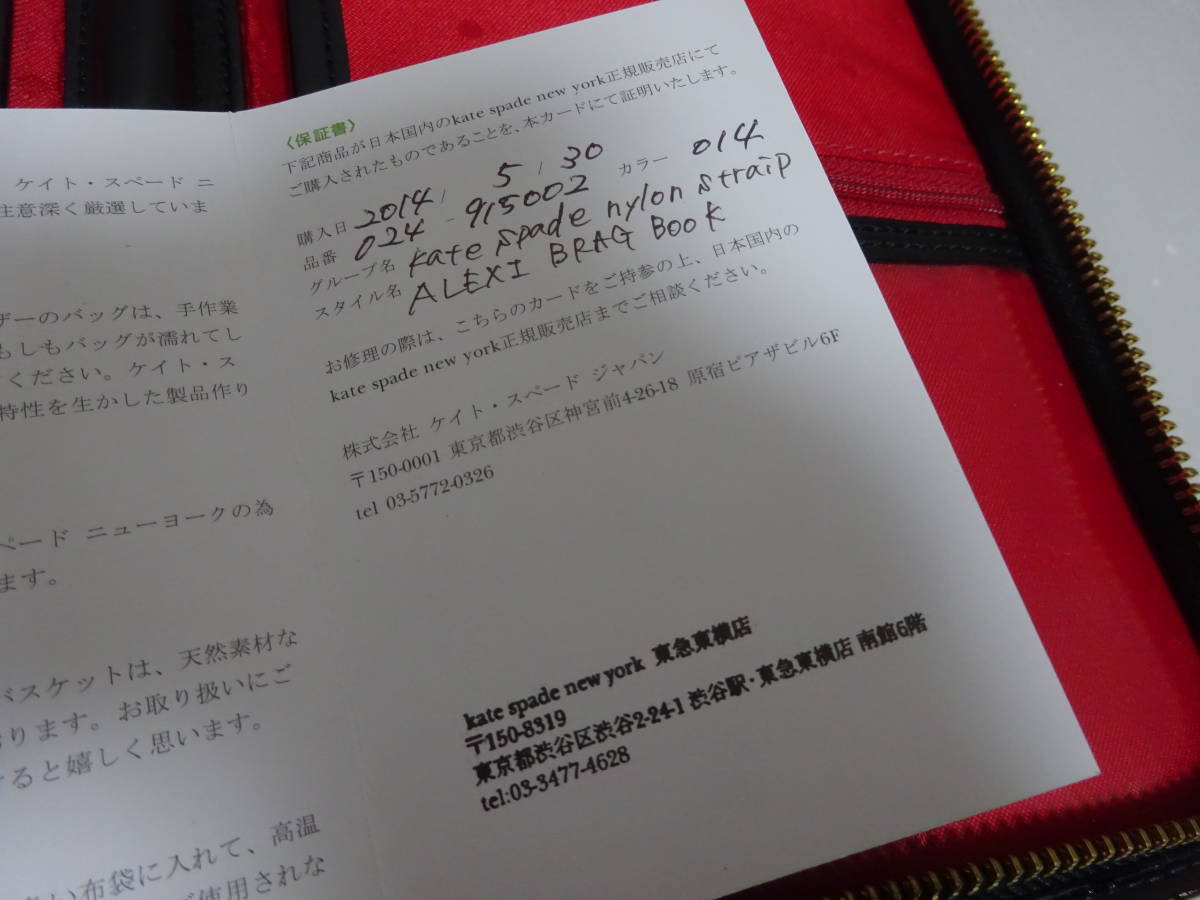 ケイト・スペード ニ
注意深く厳選していま
ザーのバッグは、手作業
もしもバッグが濡れてし
ください。ケイト・ス
特性を生かした製品作り
ペード ニューヨークの為
ます。
バスケットは、天然素材な
おります。お取り扱いにご
すると嬉しく思います。
い布袋に入れて、高温
ご使用されな
〈保証書〉
下記商品が日本国内のkate spade new york正規販売店にて
ご購入されたものであることを、本カードにて証明いたします。
購入日 2014 / 5 / 30
品番 024 - 915002 カラー 014
グループ名 kate spade nylon straip
スタイル名 ALEXI BRAG BOOK
お修理の際は、こちらのカードをご持参の上、日本国内の
kate spade new york正規販売店までご相談ください。
株式会社 ケイト・スペード ジャパン
〒150-0001 東京都渋谷区神宮前4-26-18 原宿ピアザビル6F
tel 03-5772-0326
kate spade new york 東急東横店
〒150-8319
東京都渋谷区渋谷2-24-1 渋谷駅・東急東横店 南館6階
tel:03-3477-4628